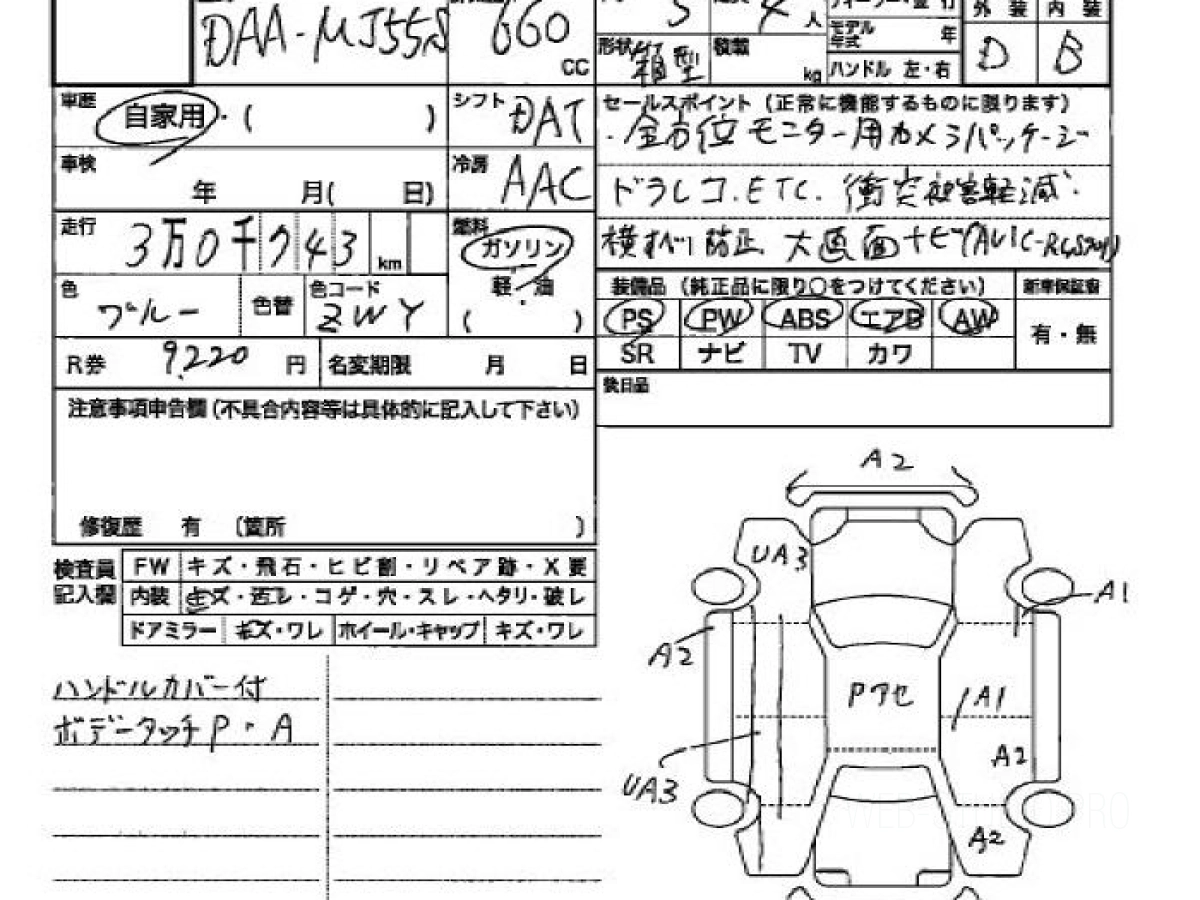 DAA-MJ55S
660
CC
5
4人
形状 箱型
積載
kg
モデル年式
年
ハンドル 左・右
外装 内装
D B
車歴
自家用・( )
シフト DAT
セールスポイント(正常に機能するものに限ります)
・全方位モニター用カメラパッケージ
車検
年 月( 日)
冷房 AAC
ドラレコ.ETC. 衝突被害軽減・
走行
3万0千743km
燃料
ガソリン
軽・油
( )
横すべり防止 大画面ナビ
色
ブルー
色替
色コード
ZWY
装備品(純正品に限り○をつけてください)
新車保証書
PS PW ABS エアB AW
有・無
SR ナビ TV カワ
R券 9,220円
名変期限 月 日
後日品
注意事項申告欄(不具合内容等は具体的に記入して下さい)
修復歴 有 (箇所 )
検査員記入欄
FW キズ・飛石・ヒビ割・リペア跡・X要
内装 キズ・汚レ・コゲ・穴・スレ・ヘタリ・破レ
ドアミラー キズ・ワレ ホイール・キャップ キズ・ワレ
ハンドルカバー付
ボデータッチP・A
A2
UA3
A1
A2
Pアセ
A1
A2
UA3
A2